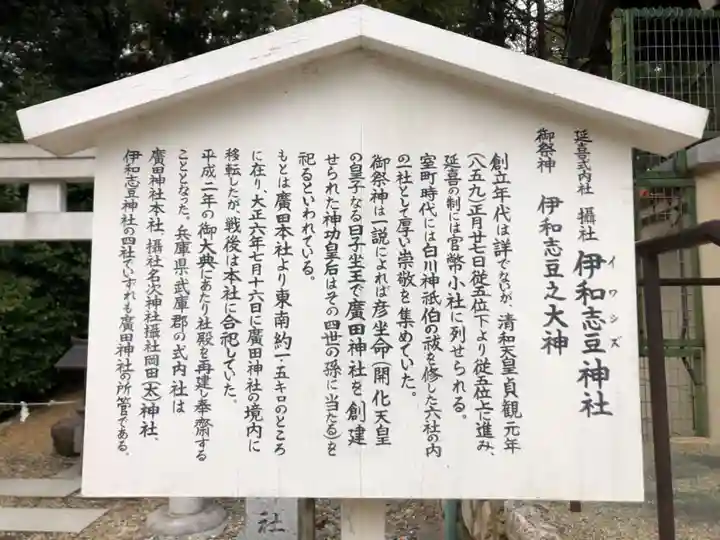 延喜式内社 攝社 伊和志豆神社
イワシズ
御祭神 伊和志豆之大神
創立年代は詳でないが、清和天皇貞観元年
(八五九)正月廿七日従五位下より従五位上に進み、
延喜の制には官幣小社に列せられる。
室町時代には白川神祇伯の祓を修した六社の内
の一社として厚い崇敬を集めていた。
御祭神は一説によれば彦坐命(開化天皇
の皇子なる日子坐王で廣田神社を創建
せられた神功皇后はその四世の孫に当たる)を
祀るといわれている。
もとは廣田本社より東南約一・五キロのところ
に在り、大正六年七月十六日に廣田神社の境内に
移転したが戦後は本社に合祀していた。
平成二年の御大典にあたり社殿を再建し奉齋する
こととなった。兵庫県武庫郡の式内社は
廣田神社本社、攝社名次神社攝社岡田(太)神社、
伊和志豆神社の四社でいずれも廣田神社の所管である。
社